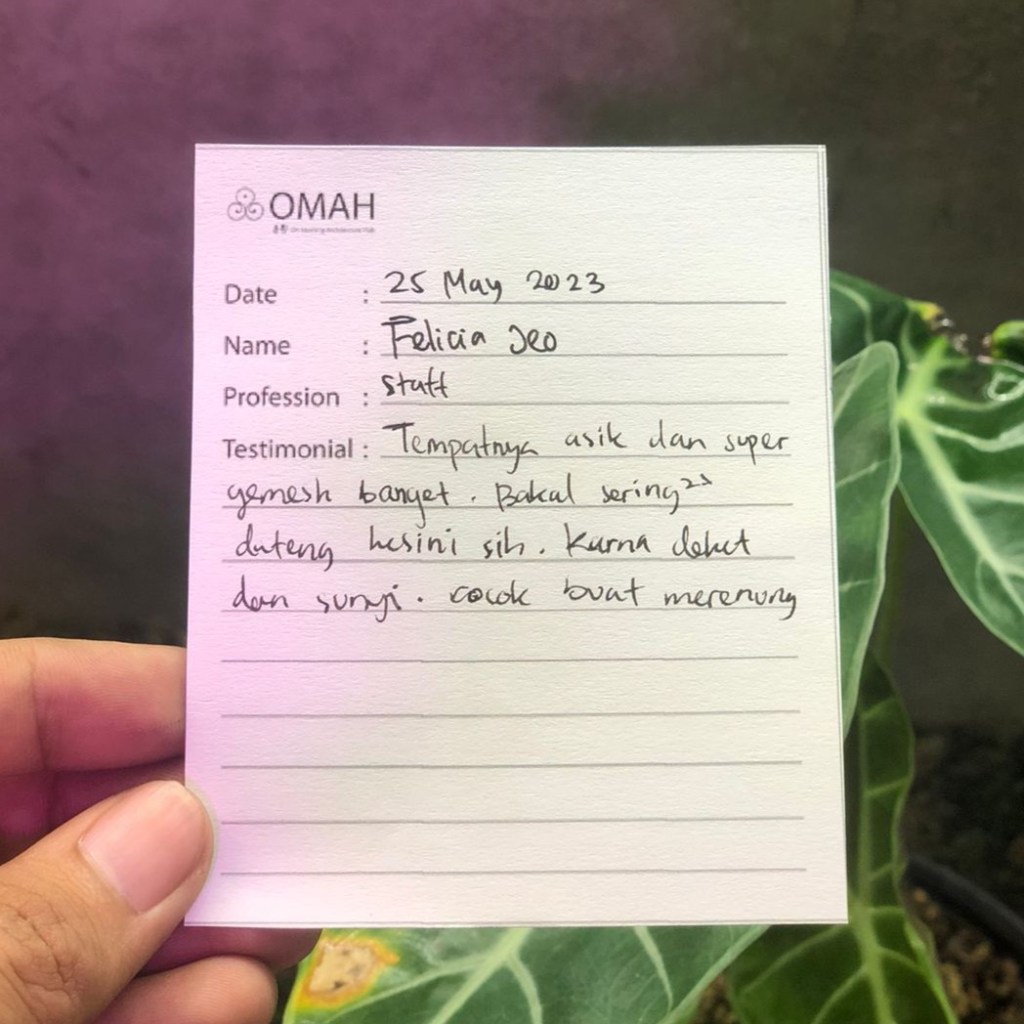 OMAH
Date : 25 May 2023
Name : Felicia Jeo
Profession : staff
Testimonial : Tempatnya asik dan super
gemesh banget. Bakal sering²
dateng kesini sih. Karna deket
dan sunyi. cocok buat merenung